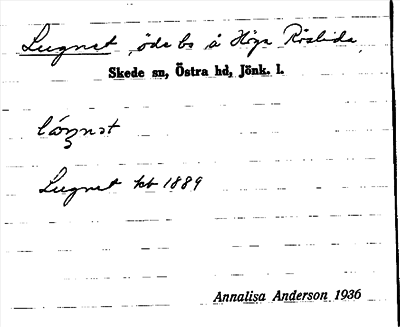 Lugnet, öde bs å Höga Röslida
Skede sn, Östra hd, Jönk. l.
Lugnet kb 1889
Annalisa Anderson 1936